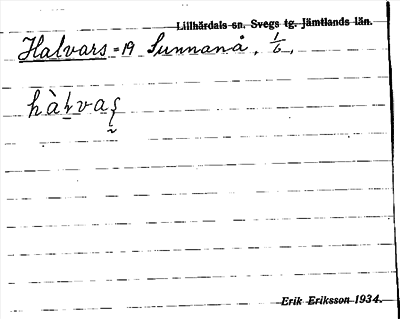 Lillhärdals sn. Svegs tg. Jämtlands län.
Halvars = 19 Sunnanå, 1/6,
Erik Eriksson 1934.